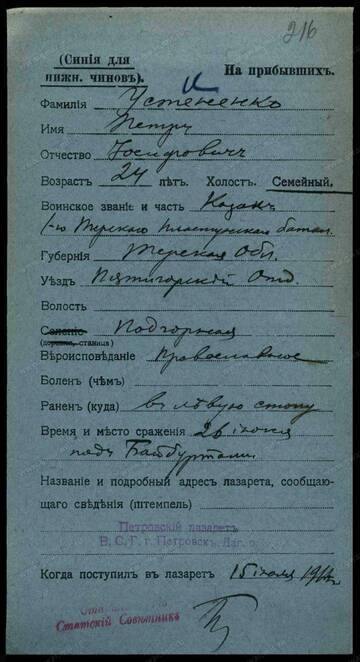 216
(Синія для
нижн. чиновъ).
На прибывшихъ.
Фамилія Устененко
Имя Петръ
Отчество Іосифовичъ
Возрастъ 24 лѣтъ. Холост. Семейный.
Воинское званіе и часть Козакъ
1-го Терскаго Пластунскаго батал.
Губернія Терская Обл.
Уѣздъ Пятигорскій Отд.
Волость
Селеніе Подгорная
(деревня, станица)
Вѣроисповѣданіе Православное
Боленъ (чѣмъ)
Раненъ (куда) въ лѣвую стопу
Время и мѣсто сраженія 26 іюня
подъ Байбуртомъ
Названіе и подробный адресъ лазарета, сообщаю-
щаго свѣдѣнія (штемпель)
Петровскій лазаретъ
В. С. Г. г. Петровскъ, Даг. о.
Когда поступилъ въ лазаретъ 15 іюля 191
Статскій Совѣтникъ